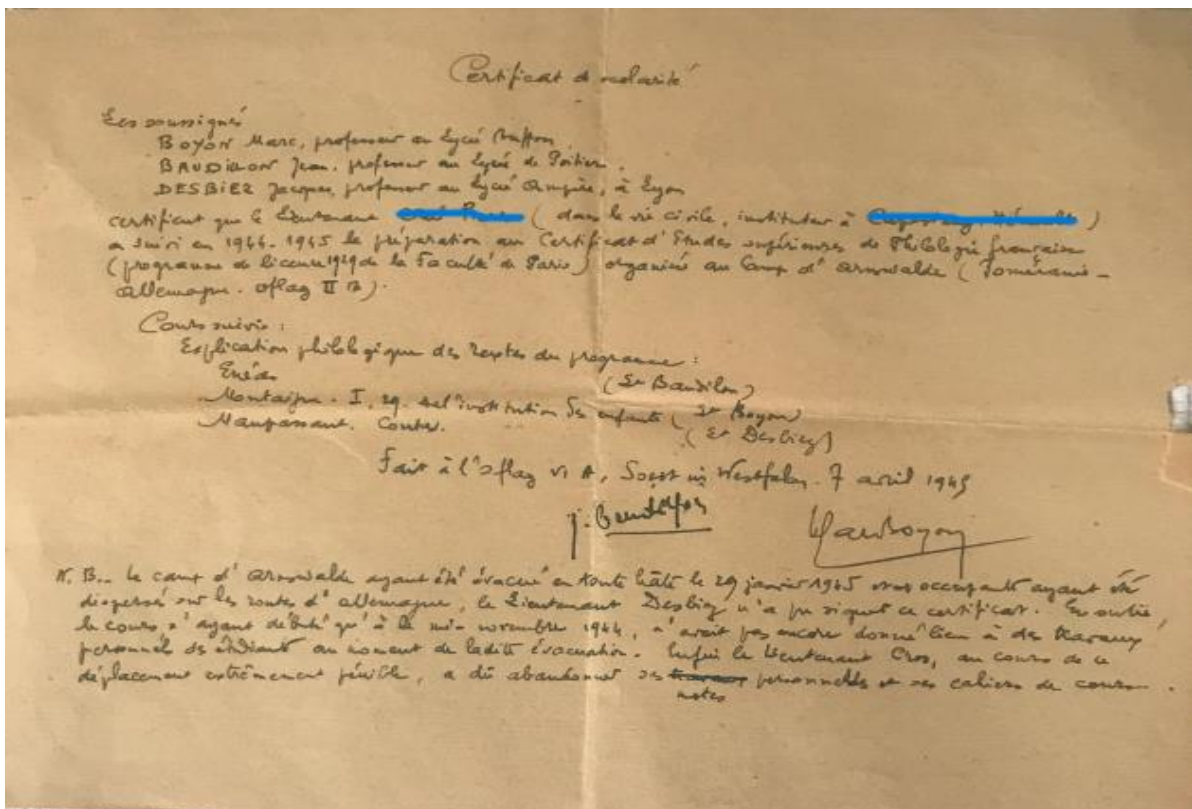 Certificat de scolarité
Les soussignés
BOYON Marc, professeur au Lycée Buffon,
BAUDILLON Jean, professeur au Lycée de Poitiers,
DESBIEZ Jacques, professeur au Lycée Ampère, à Lyon
certifient que le Lieutenant ( dans la vie civile, instituteur à )
a suivi en 1944-1945 la préparation au Certificat d'Etudes supérieures de Philologie française
( programme de licence 1929 de la Faculté de Paris ) organisée au Camp d'Arnswalde ( Poméranie -
Allemagne. Oflag II B ).
Cours suivis :
Explication philologique des textes du programme :
Enéas (Lt Baudilon)
Montaigne. I, 29. de l'institution des enfants ( Lt Boyon)
Maupassant. Contes. ( Lt Desbiez)
Fait à l'Oflag VI A, Soest in Westfalen. 7 avril 1945
J. Baudilon Marc Boyon
N. B.. Le camp d'Arnswalde ayant été évacué en toute hâte le 29 janvier 1945 et ses occupants ayant été
dispersés sur les routes d'Allemagne, le Lieutenant Desbiez n'a pu signer ce certificat. En outre,
le cours n'ayant débuté qu'à la mi-novembre 1944, n'avait pas encore donné lieu à des travaux
personnels des étudiants au moment de ladite évacuation. Enfin le Lieutenant Cros, au cours de ce
déplacement extrêmement pénible, a dû abandonner ses travaux personnelles et ses cahiers de cours.
notes